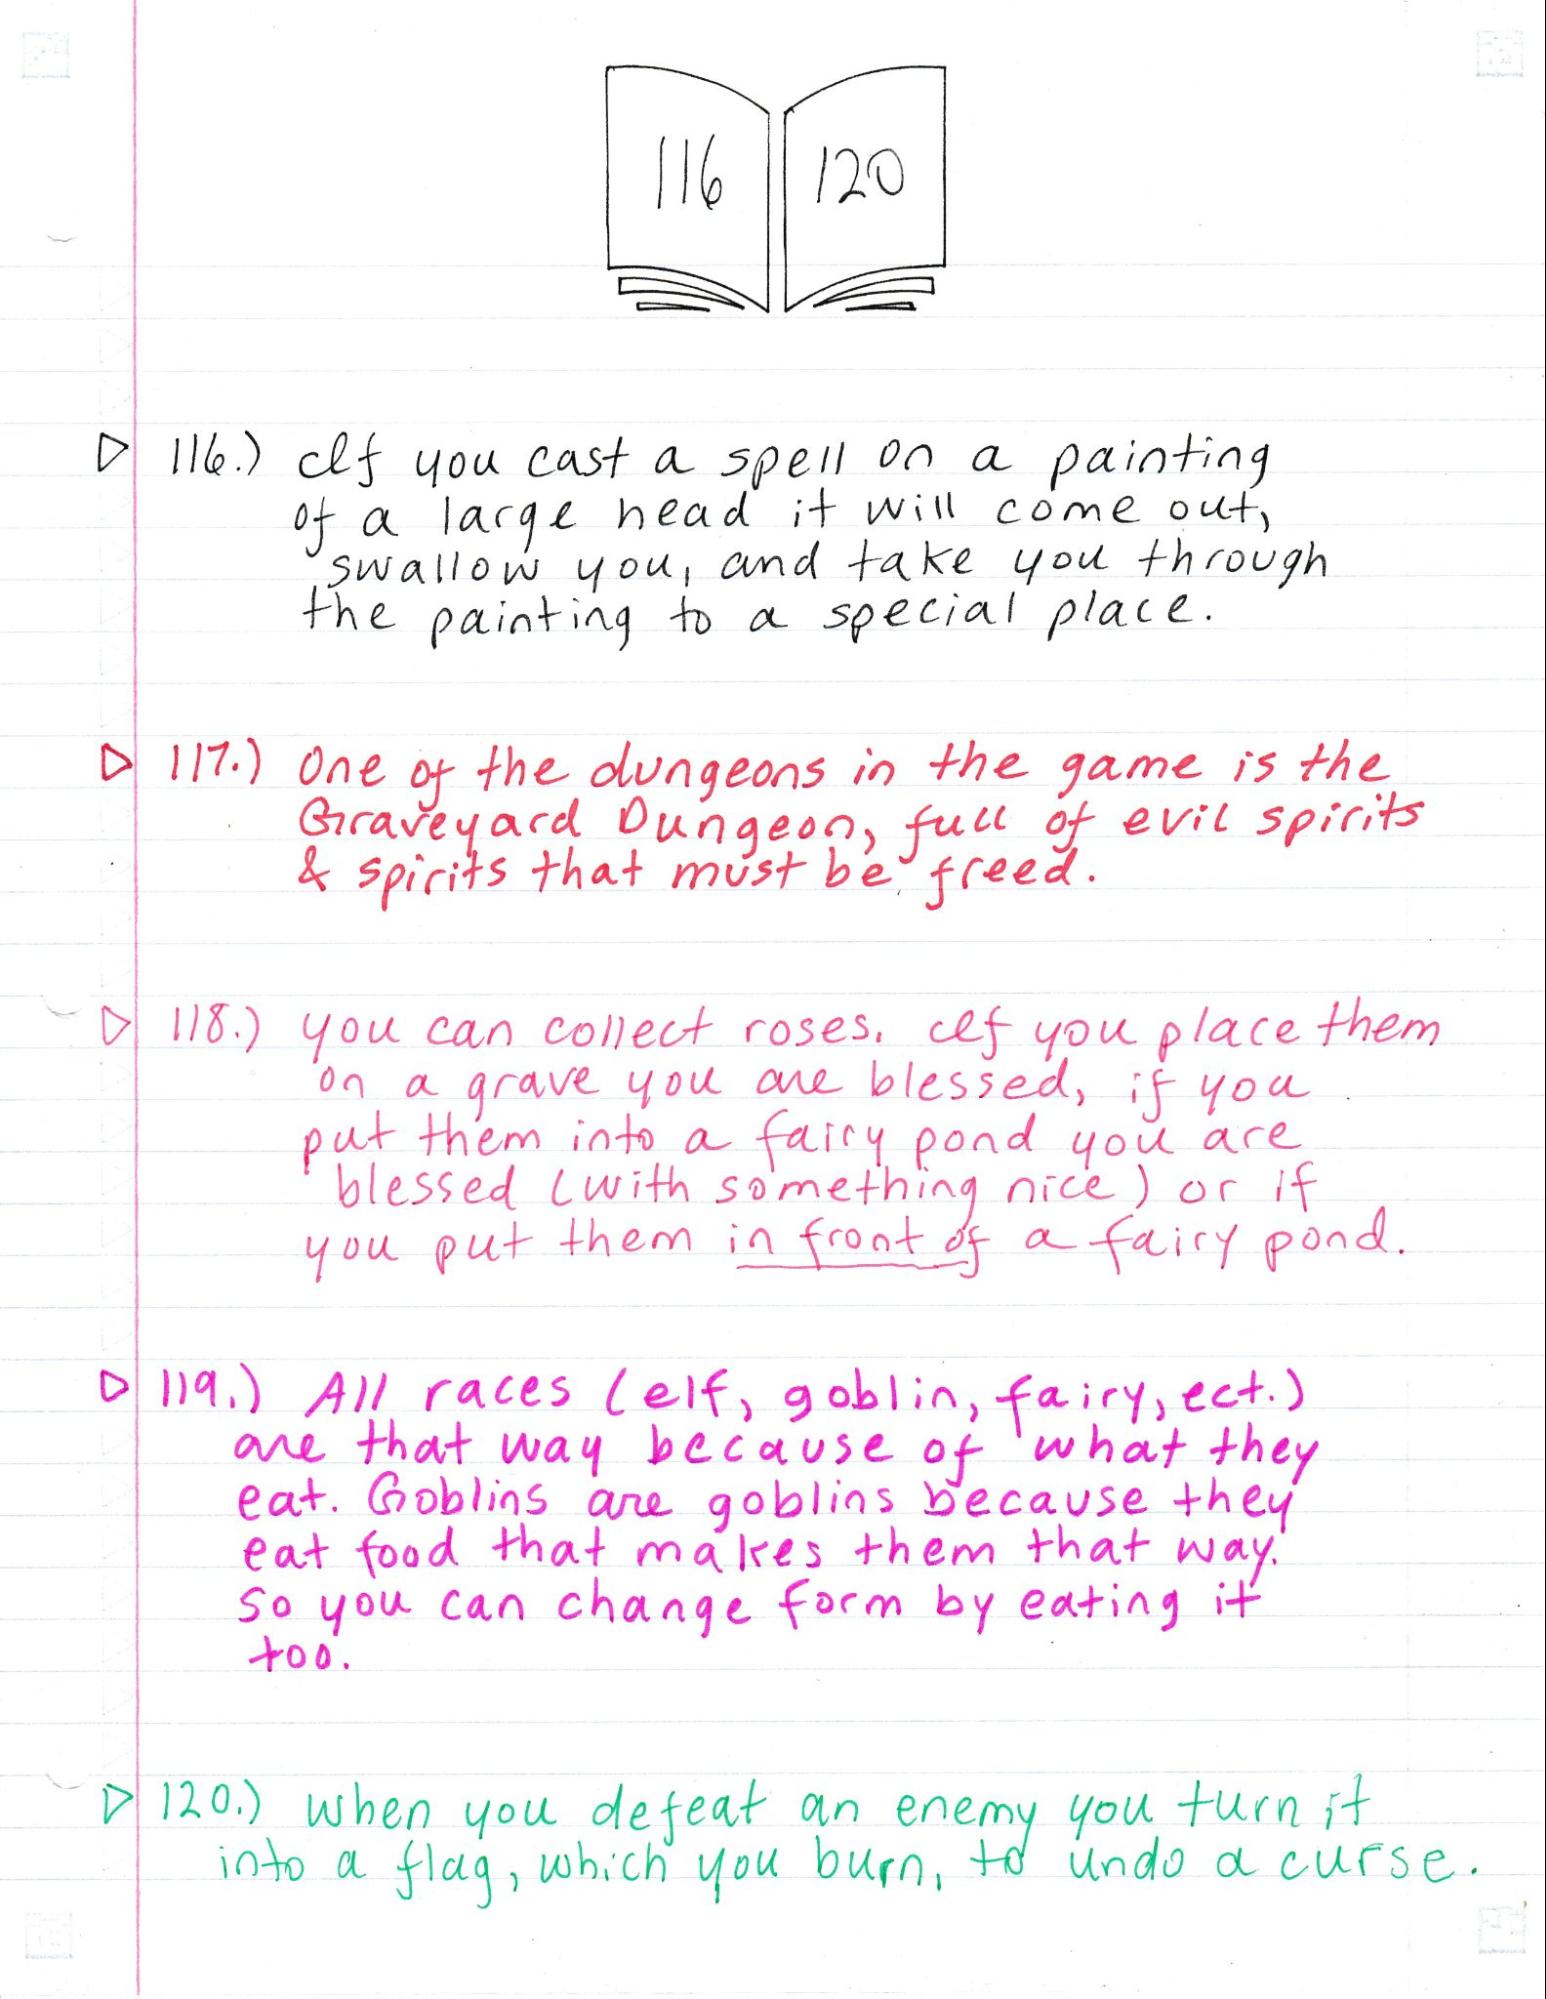 116 120
▷ 116.) If you cast a spell on a painting
of a large head it will come out,
swallow you, and take you through
the painting to a special place.
▷ 117.) One of the dungeons in the game is the
Graveyard Dungeon, full of evil spirits
& spirits that must be freed.
▷ 118.) you can collect roses. If you place them
on a grave you are blessed, if you
put them into a fairy pond you are
blessed (with something nice) or if
you put them in front of a fairy pond.
▷ 119.) All races (elf, goblin, fairy, ect.)
are that way because of what they
eat. Goblins are goblins because they
eat food that makes them that way.
So you can change form by eating it
too.
▷ 120.) When you defeat an enemy you turn it
into a flag, which you burn, to undo a curse.